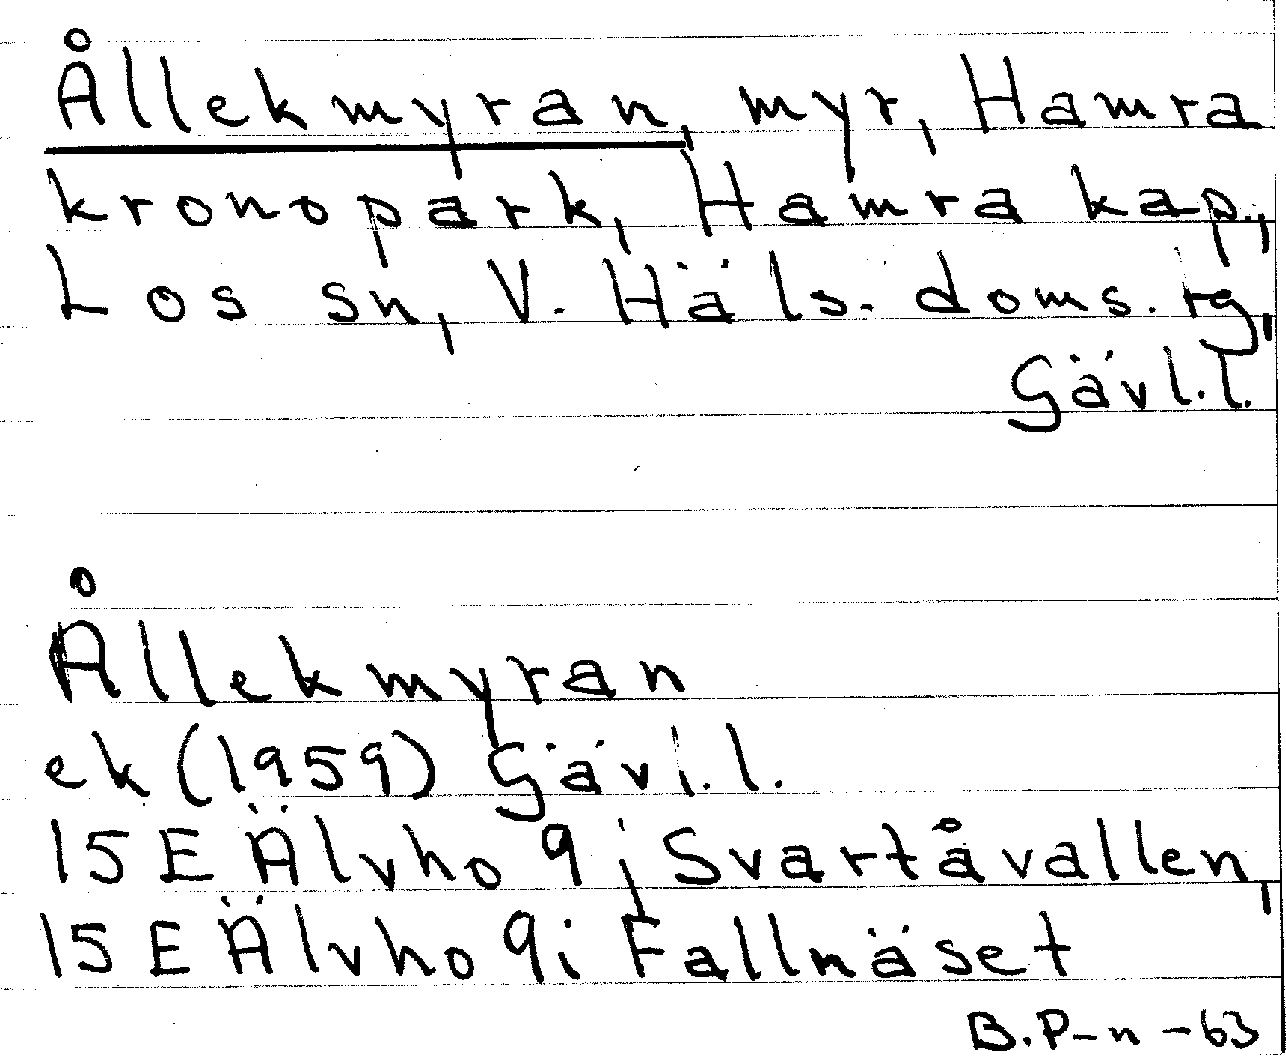 Ållekmyran, myr, Hamra
kronopark, Hamra kap.,
Los sn, V. Häls. doms. tg,
Gävl.l.
Ållekmyran
ek (1959) Gävl.l.
15 E Älvho 9 j Svartåvallen,
15 E Älvho 9 i Fallnäset
B.P-n -63